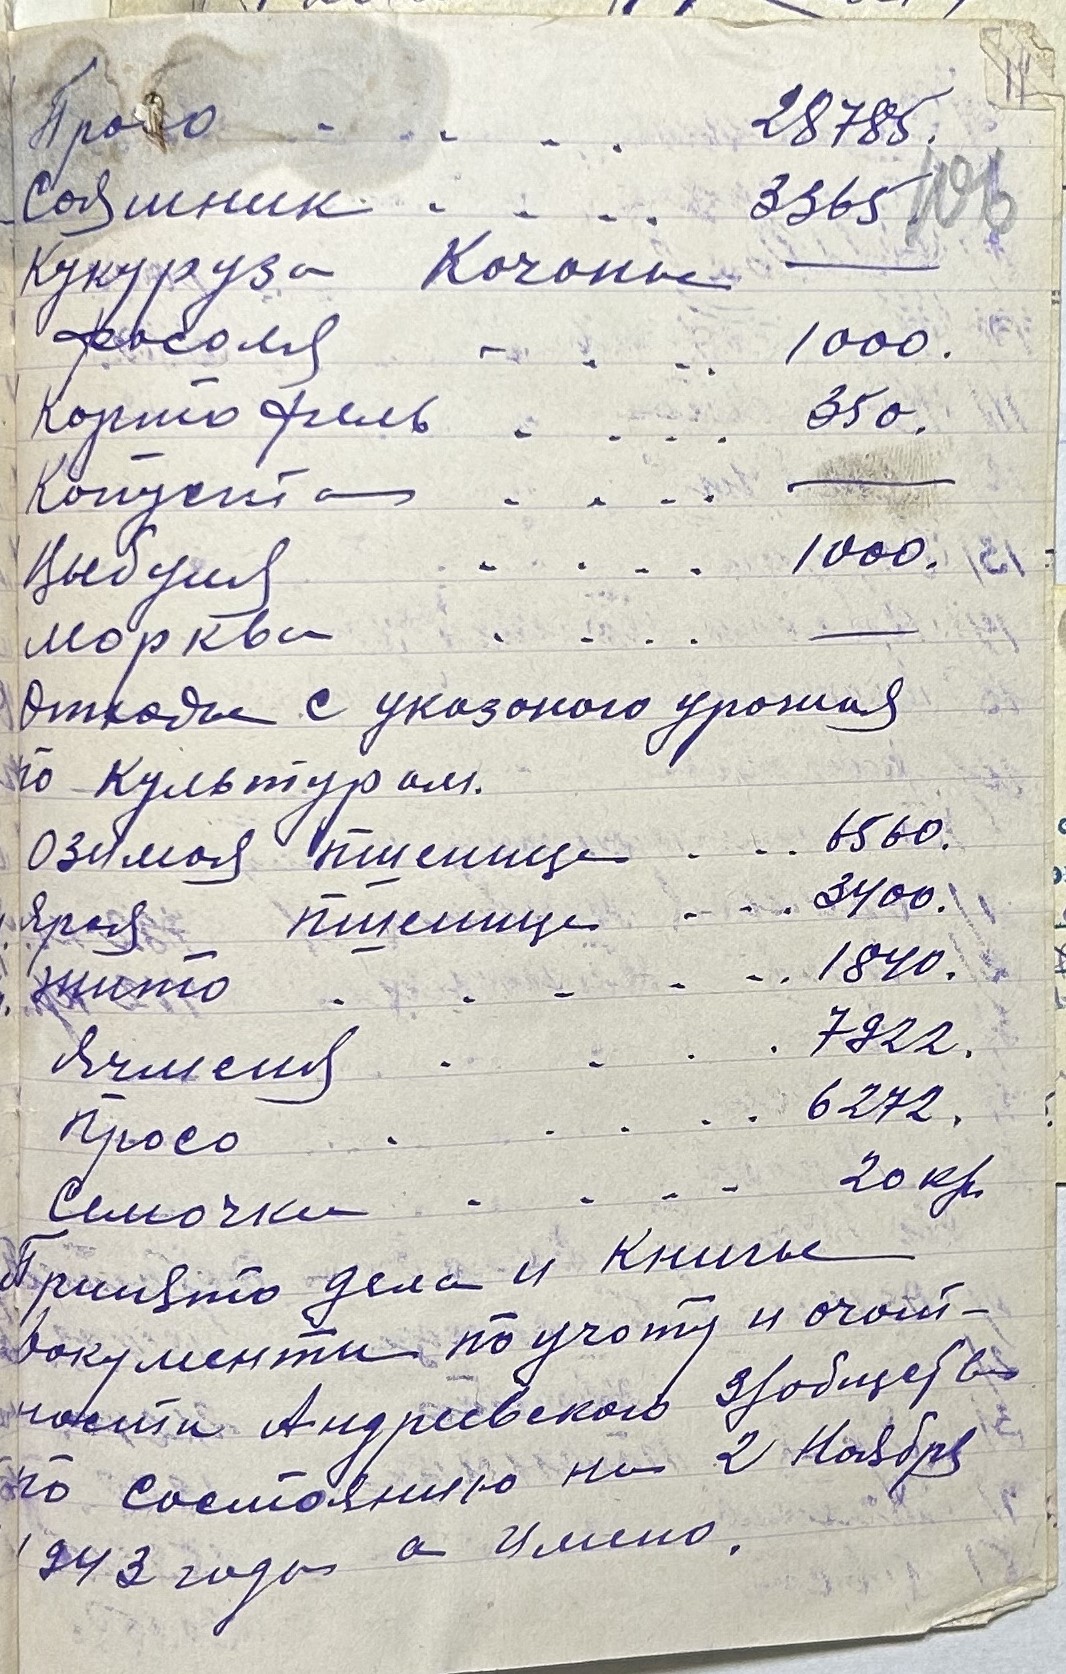 Просо . . . . . 28785.
Сояшник . . . . 3365
106
Кукуруза Кочоны —
фасоля - . .. 1000.
Картофель . . . . . 350.
Копуста . . . . —
Цыбуля . . . . . 1000.
морква . . . . —
Отходы с указоного урожая
по культурам.
Озимая пшеница . . .. 6560.
Ярая пшеница . - - . 3400.
жито . . . . .. 1840.
Ячменя . . . . 7922.
Просо . . . . . . 6272.
Семочки . . . - - 20 кг.
Принято дела и книги
документи по учоту и очот-
ности Андреевского з/общества
по состоянию на 2 Ноября
1943 года а имено.